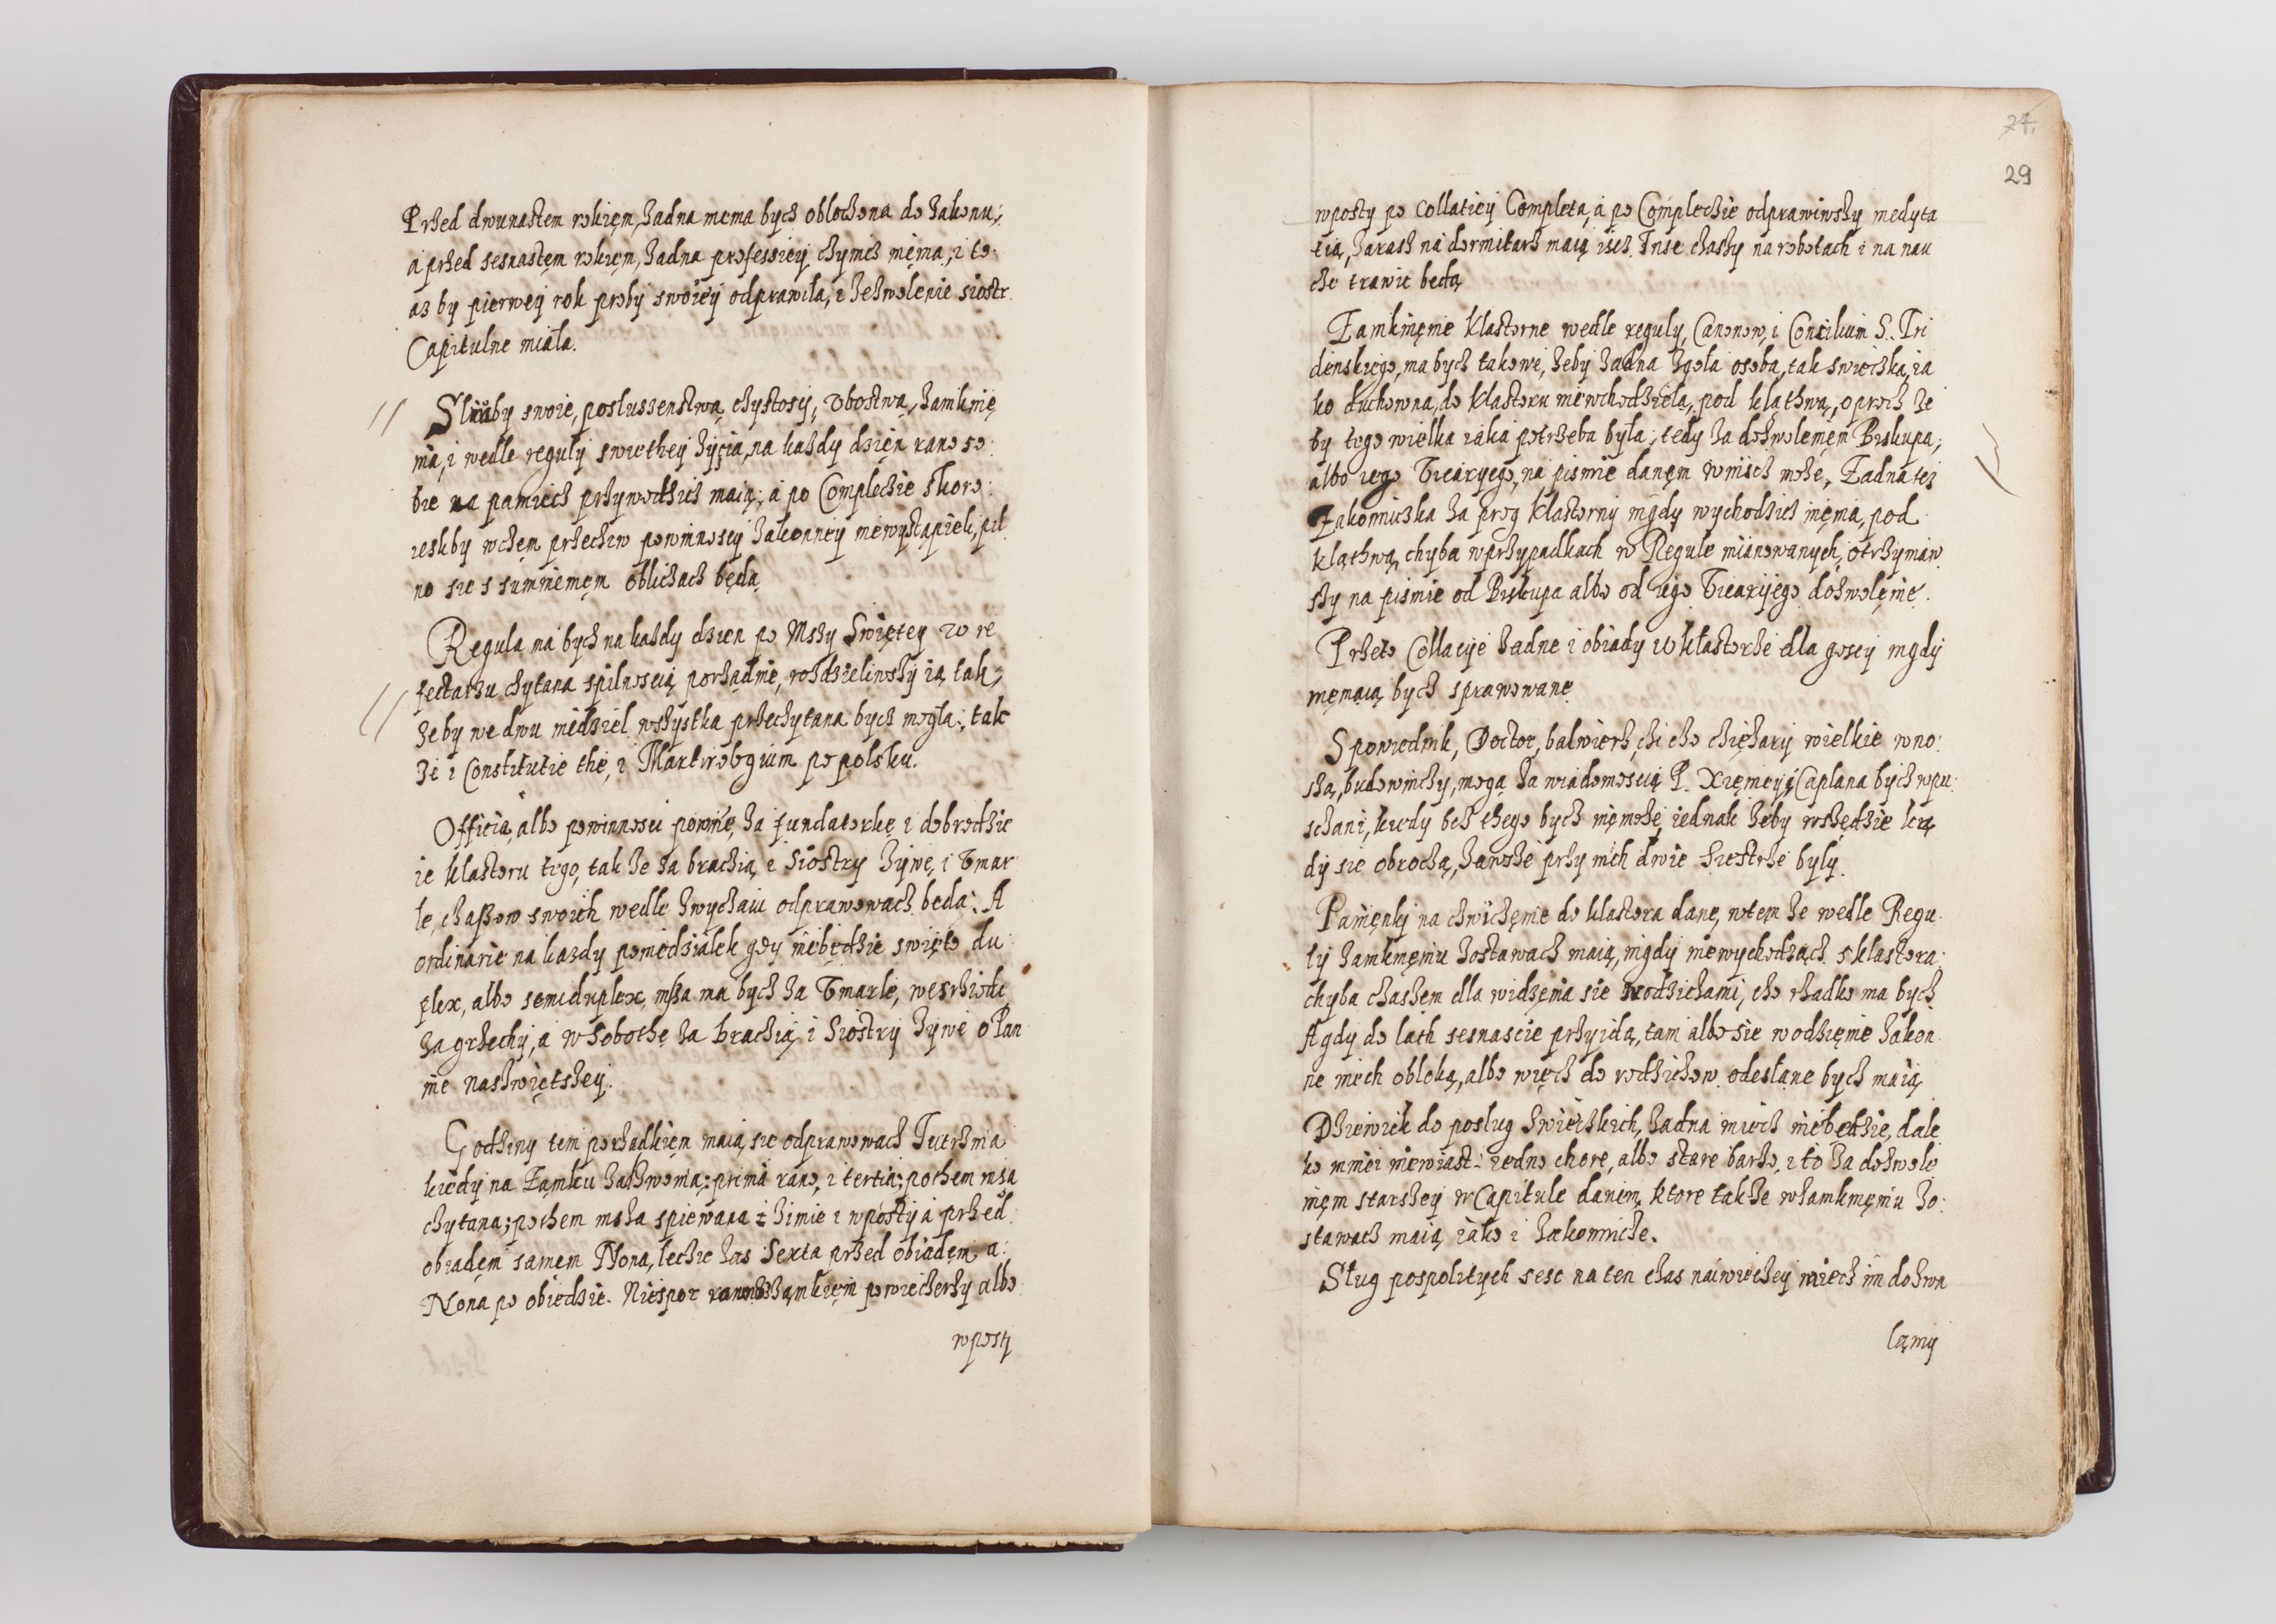 Przed dwunastem rokięm, żadna mema bych obloczona do zakonu,
a przed sesnastęm rokięm, żadna professiey czynich męma, i to
asby pierwey rok proby swoiey odprawiła, i zezwolenie siostr
Capitulne miała.
Sluby swoie, poslussenstwą, czystosci, vbostwą, zamknię
nia, i wedle reguly swiethey życia, na każdy dzień rano so
bie na pamiech przywodzich maią; a po Complechie skoro
iesliby wczem przechiw powinnosciy zakonney niewystąpieli, pil
no sie s sumnieniem obliczach będą
Regula ma bych na każdy dzien po Mszy Swiętey w re
fectarzu czytana spilnoscią porządnie, rozdzieliwszy ią tak,
żeby we dwu niedziel wszystka przeczytana bych mogla; tak
że i Constitutie the, i Martirologium po polsku.
Officia, albo powinnosci pewne, za fundatorkę i dobrodzie
ie klastoru tego, tak że za brachią i Siostry żywe, i vmar
le, czassow swoich wedle zwyczaiu odprawowach beda. A
ordinarie na kazdy poniedzialek gdy niebędzie swięto du
plex, albo semiduplex, mssa ma bych za vmarle, wesrzode
za grzechy, a w Sobothę za brachią i Siostry żywe o Pan
nie naswiętszey.
Godziny tem porządkięm maią sie odprawowach Jutrznia
kiedy na Zamku zadzwonią; prima rano, i tertia; pothem msa
czytana; pothem msza spiewana z zimie i wposty a przed
obiadęm samem Nona, lechie zas Sexta przed obiadęm a
Nona po obiedzie. Niespor zamkięm powieczerzy albo
wposty
24.
29
wposty po collatiey Completa, a po Complechie odprawiwszy medyta
tią, zarash na dormitarz maią iśch. Inse czaszy na robotach i na nau
che trawic będą
Zamknięnie klastorne wedle reguly, Canonow, i Concilium S. Tri
denskiego, ma bych takowe, żeby żadna zgoła osoba, tak swieczka, ia
ko duchowna, do klastoru niewchodzieła, pod kląthwą, oprocz że
by tego wielka iaka potrzeba była; tedy za dozwolenięm Biskupa,
albo iego Vicaryego, na pismie danęm wnisch może. Żadna tej
Zakonniczka za prog klastorny nigdy wychodzich niema, pod
kląthwą, chyba wprzypadkach w Regule mianowanych, otrzymaw
szy na pismie od Biskupa albo od iego Vicaryiego dozwolęnie.
Przeto Collacyie żadne i obiady w klastorze dla goscy nigdy
niemaią bych sprawowane
Spowiednik, Doctor, balwierz, chi cho chiężary wielkie wno
szą, budowniczy, mogą za wiadomoscią P. Xięniey i Caplana bych wpu
schani, kiedy bez thego bych niemoże, iednak żeby wszędzie kę
dy sie obroczą, zawsze przy nich dwie Siestrze były.
Panięnky na chwiczęnie do klastora dane, wtem że wedle Regu
ly zamknięniu zostawach maią, nigdy niewychodząch s klastora
chyba czashem dla widzęnia sie zrodzichami, cho rzadko ma bych
A gdy do lath sesnascie przyidą, tam albo sie wodzięnie zakon
ne niech obloką, albo więch do rodzichow odeslane bych maią
Dziewiek do poslug swieczkich, żadna mich niebędzie, dale
ko mniei niewiast: iedno chore, albo stare barzo, i to za dozwole
nięm starszey w Capitule danim, ktore także wzamknięniu zo
stawach maią iako i zakonniche.
Slug pospolitych sesc na ten czas naiwiechey miech im dozwa
lamy